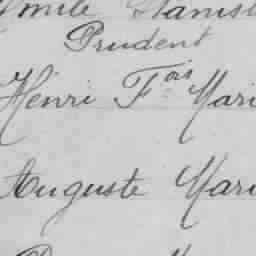 Emile Stanisl
Prudent
Henri Fois Mari
Auguste Mari